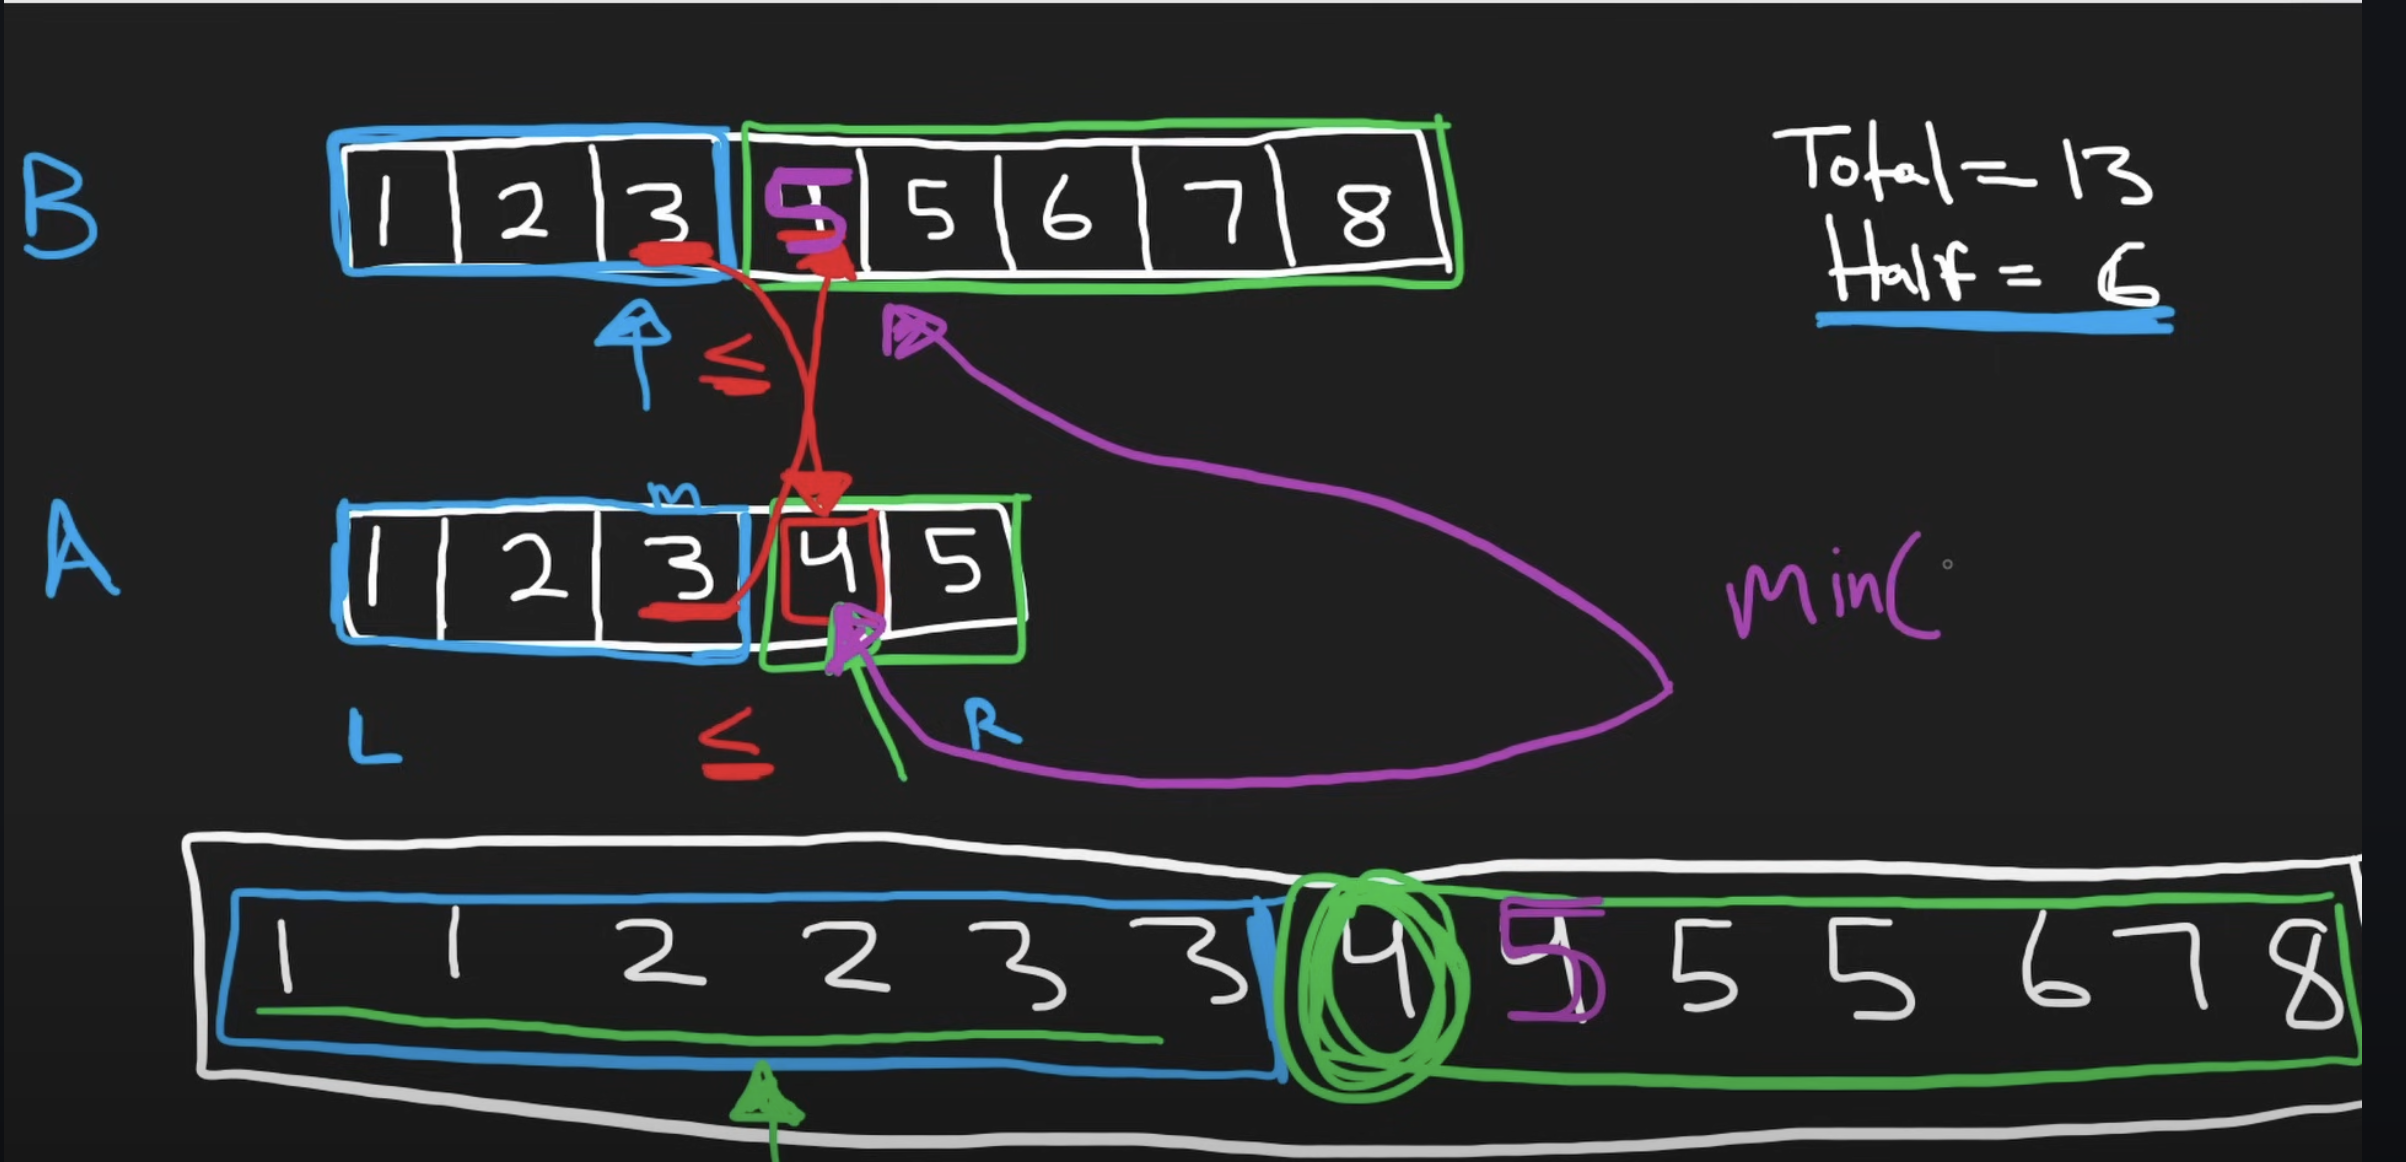 B 1 2 3 5 5 6 7 8
Total = 13
Half = 6
≤
m
A 1 2 3 4 5
min(
L ≤ R
1 1 2 2 3 3 4 5 5 5 6 7 8